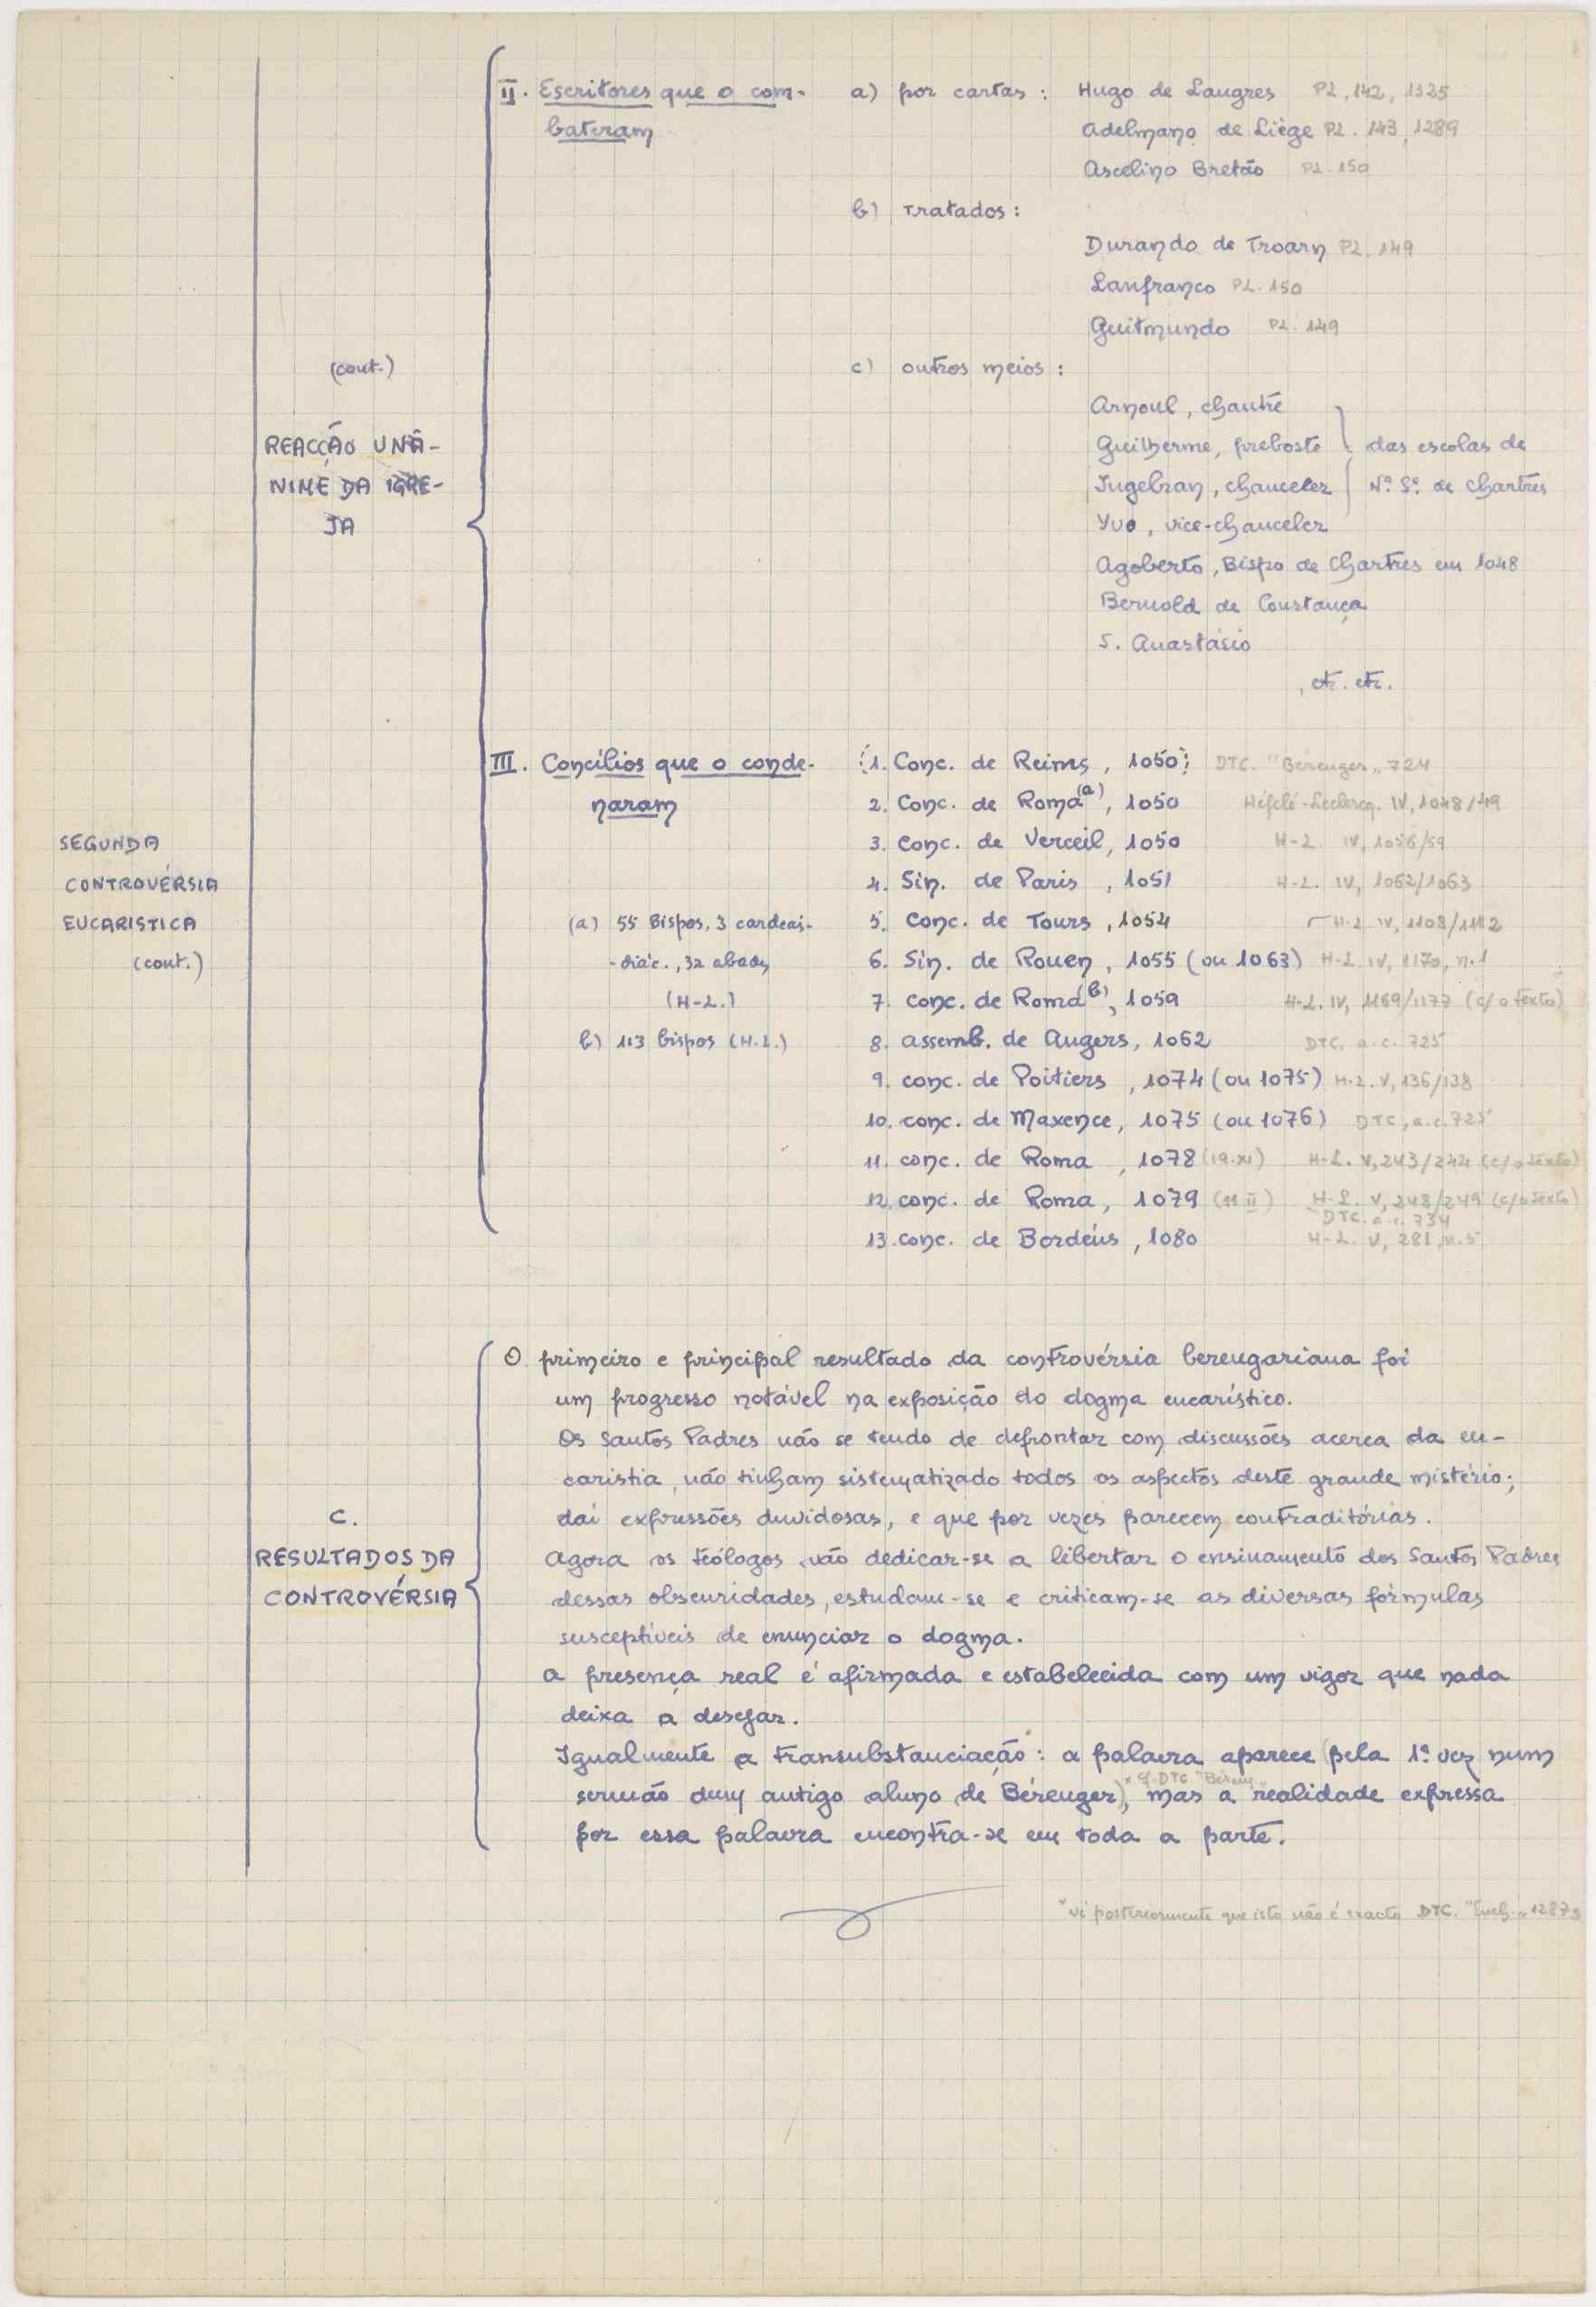 SEGUNDA
CONTROVÉRSIA
EUCARISTICA
(cont.)
(cont.)
REACÇÃO UNÂ-
NIME DA IGRE-
JA
II. Escritores que o com-
bateram
a) por cartas: Hugo de Langres PL, 142, 1325
Adelmano de Liège PL. 143, 1289
Ascelino Bretão PL. 150
b) Tratados:
Durando de Troarn PL. 149
Lanfranco PL. 150
Guitmundo PL. 149
c) outros meios:
Arnoul, chantre
Guilherme, preboste
Ingelran, chanceler
Yvo, vice-chanceler
das escolas de
Nª Sª de Chartres
Agoberto, Bispo de Chartres em 1048
Bernold de Constança
S. Anastásio
, etc. etc.
III. Concílios que o conde-
naram
(1. Conc. de Reims, 1050); DTC. "Bérenger„ 724
2. Conc. de Roma(a), 1050 Héfelé-Leclercq. IV, 1048/49
3. Conc. de Verceil, 1050 H-L. IV, 1056/59
4. Sin. de Paris, 1051 H-L. IV, 1062/1063
5. Conc. de Tours, 1054 H-L IV, 1108/1112
6. Sin. de Rouen, 1055 (ou 1063) H-L IV, 1170, n.1
7. Conc. de Roma(b), 1059 H-L. IV, 1169/1177 (c/o texto)
8. assemb. de Angers, 1062 DTC, a.c. 725
9. conc. de Poitiers, 1074 (ou 1075) H-L. V, 136/138
10. conc. de Maxence, 1075 (ou 1076) DTC, a.c. 725
11. conc. de Roma, 1078 (19.XI) H-L. V, 243/244 (c/o texto)
12. conc. de Roma, 1079 (11 II) H-L. V, 248/249 (c/o texto)
DTC. a.c. 734
13. conc. de Bordéus, 1080 H-L. V, 281, n.5
(a) 55 Bispos, 3 cardeais-
-diác., 32 abades
(H-L.)
b) 113 bispos (H.L.)
C.
RESULTADOS DA
CONTROVÉRSIA
O primeiro e principal resultado da controvérsia berengariana foi
um progresso notável na exposição do dogma eucarístico.
Os Santos Padres não se tendo de defrontar com discussões acerca da eu-
caristia, não tinham sistematizado todos os aspectos deste grande mistério;
daí expressões duvidosas, e que por vezes parecem contraditórias.
Agora os teólogos vão dedicar-se a libertar o ensinamento dos Santos Padres
dessas obscuridades, estudam-se e criticam-se as diversas fórmulas
susceptíveis de enunciar o dogma.
A presença real é afirmada e estabelecida com um vigor que nada
deixa a desejar.
Igualmente a transubstanciação: a palavra aparece (pela 1ª vez num
sermão dum antigo aluno de Bérenger)*, mas a realidade expressa
cf. DTC "Béreng.„
por essa palavra encontra-se em toda a parte.
*vi posteriormente que isto não é exacto DTC.